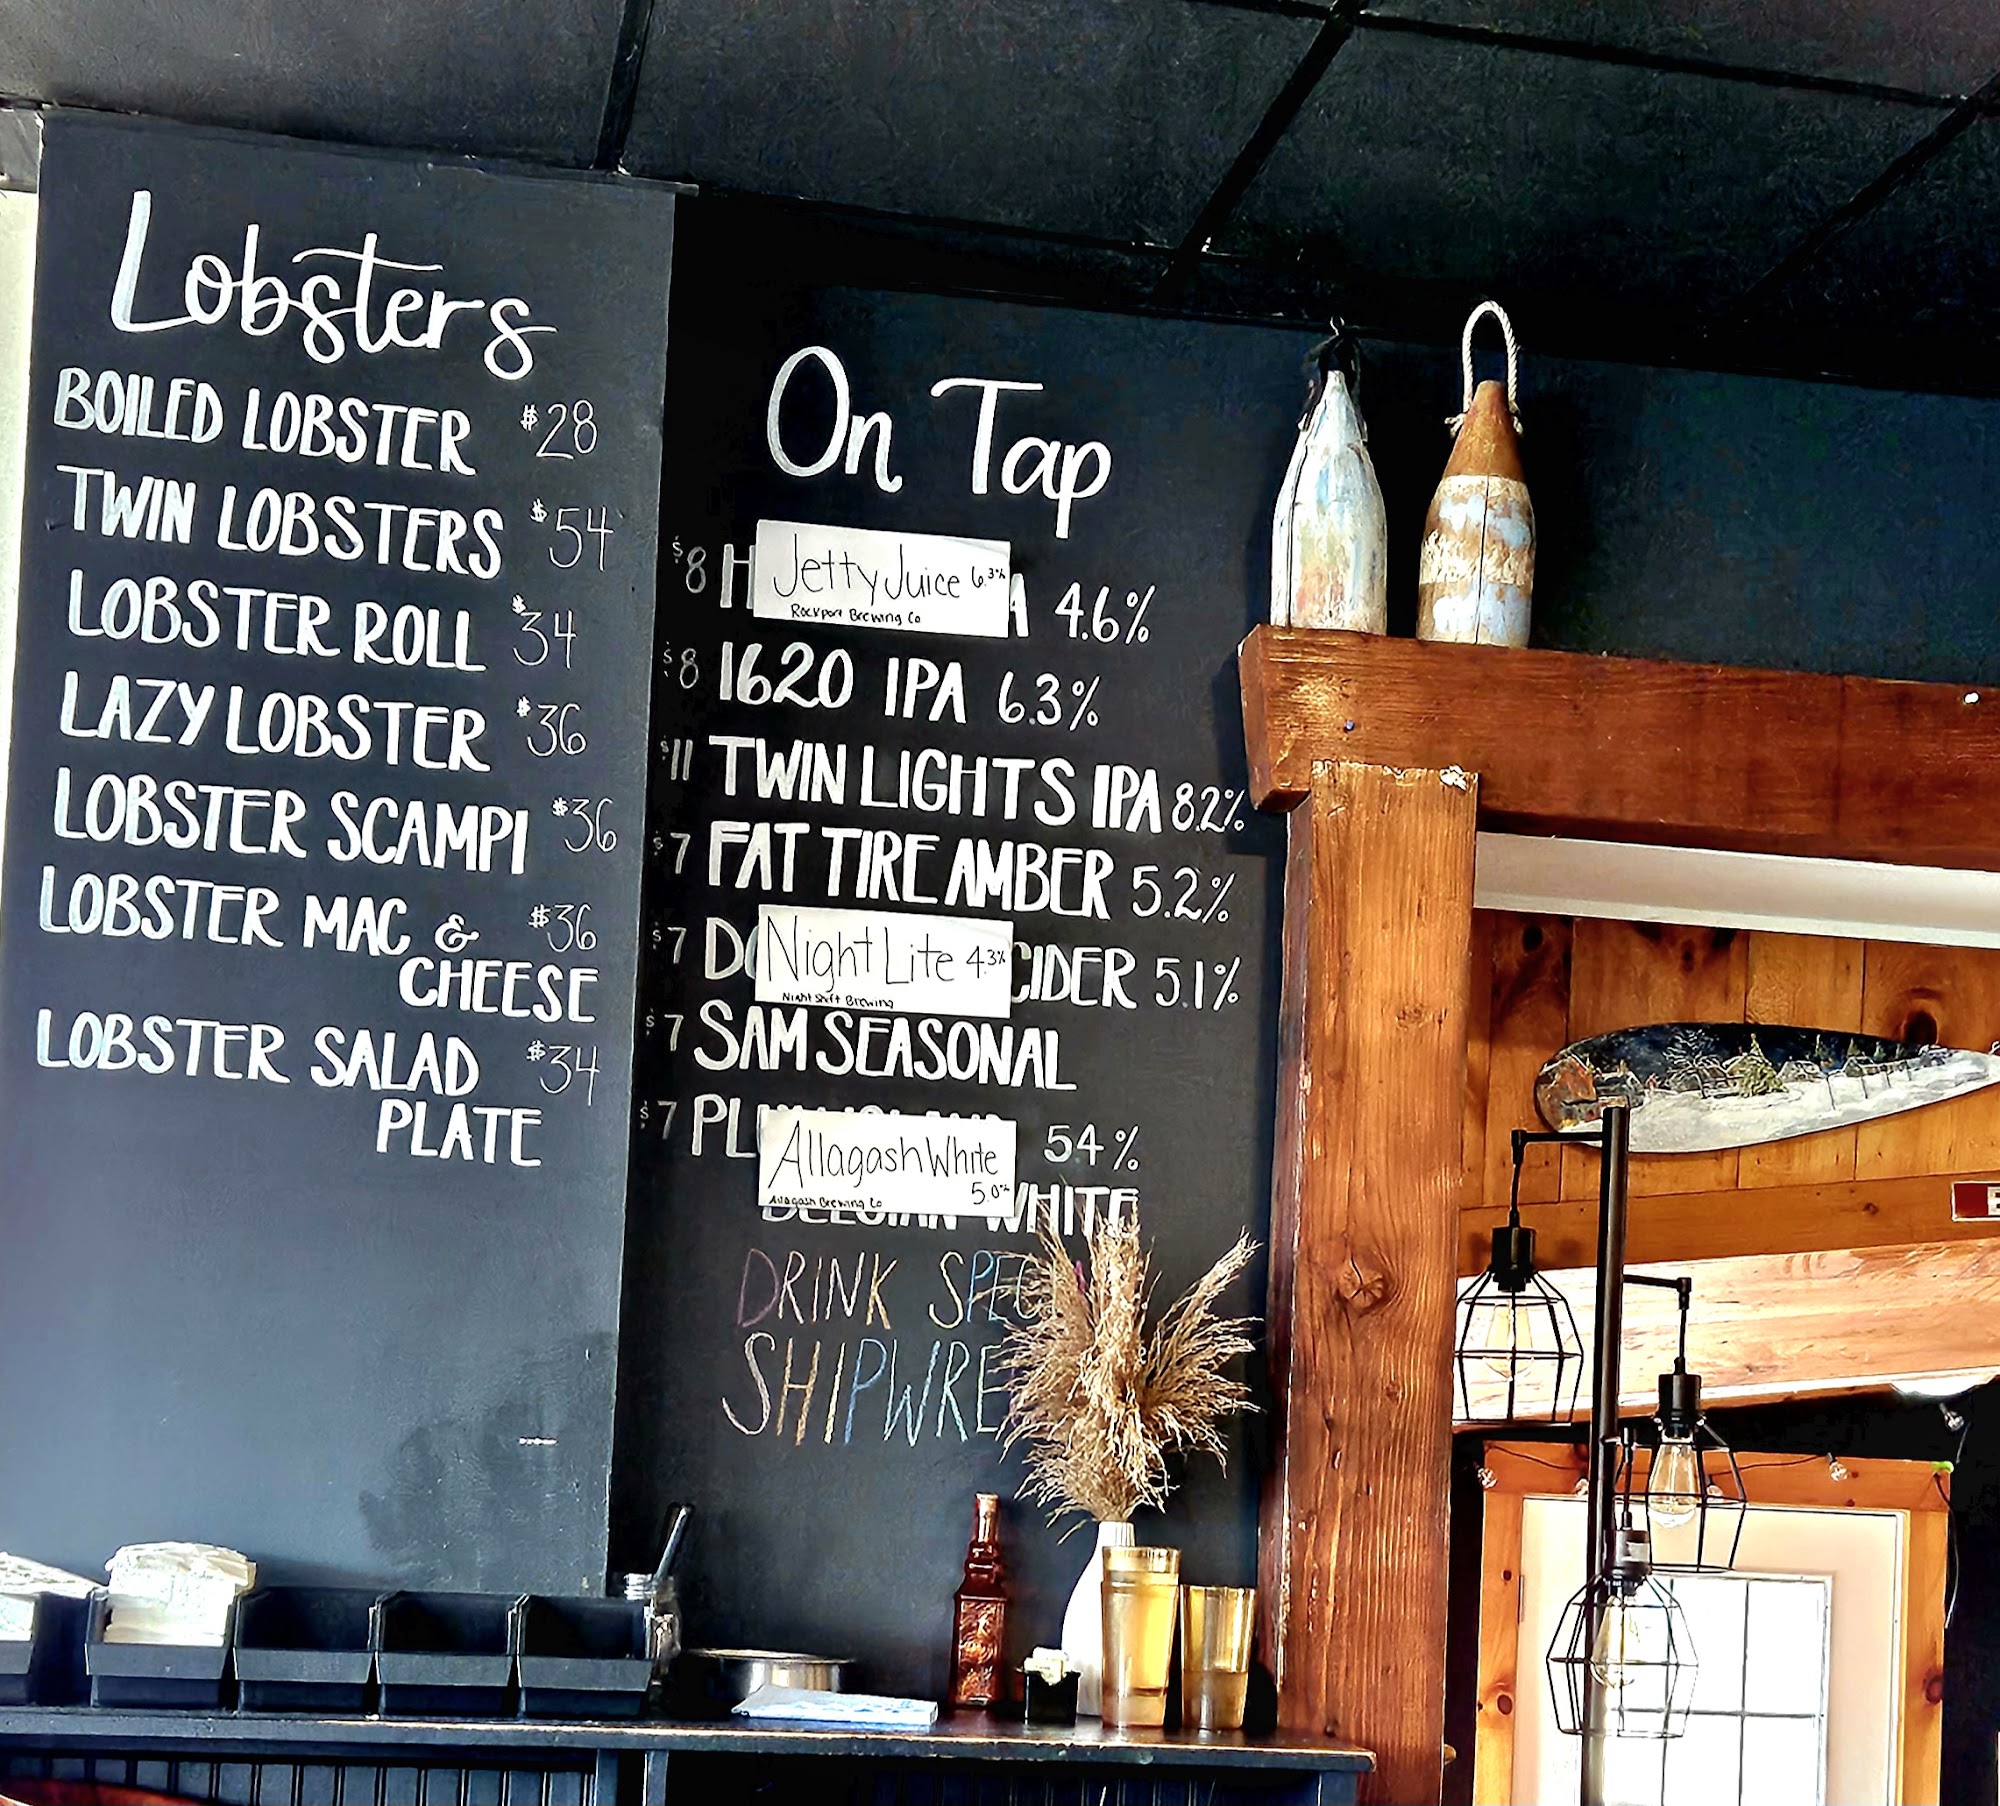 Lobsters
BOILED LOBSTER $28
TWIN LOBSTERS $54
LOBSTER ROLL $34
LAZY LOBSTER $36
LOBSTER SCAMPI $36
LOBSTER MAC & $36
CHEESE
LOBSTER SALAD $34
PLATE
On Tap
$8 Jetty Juice 6.3% 4.6%
Rockport Brewing Co
$8 1620 IPA 6.3%
$11 TWIN LIGHTS IPA 8.2%
$7 FAT TIRE AMBER 5.2%
$7 Night Lite 4.3% CIDER 5.1%
Night Shift Brewing
$7 SAM SEASONAL
$7 Allagash White 5.4%
5.0%
Allagash Brewing Co
WHITE
DRINK SPEC
SHIPWRE